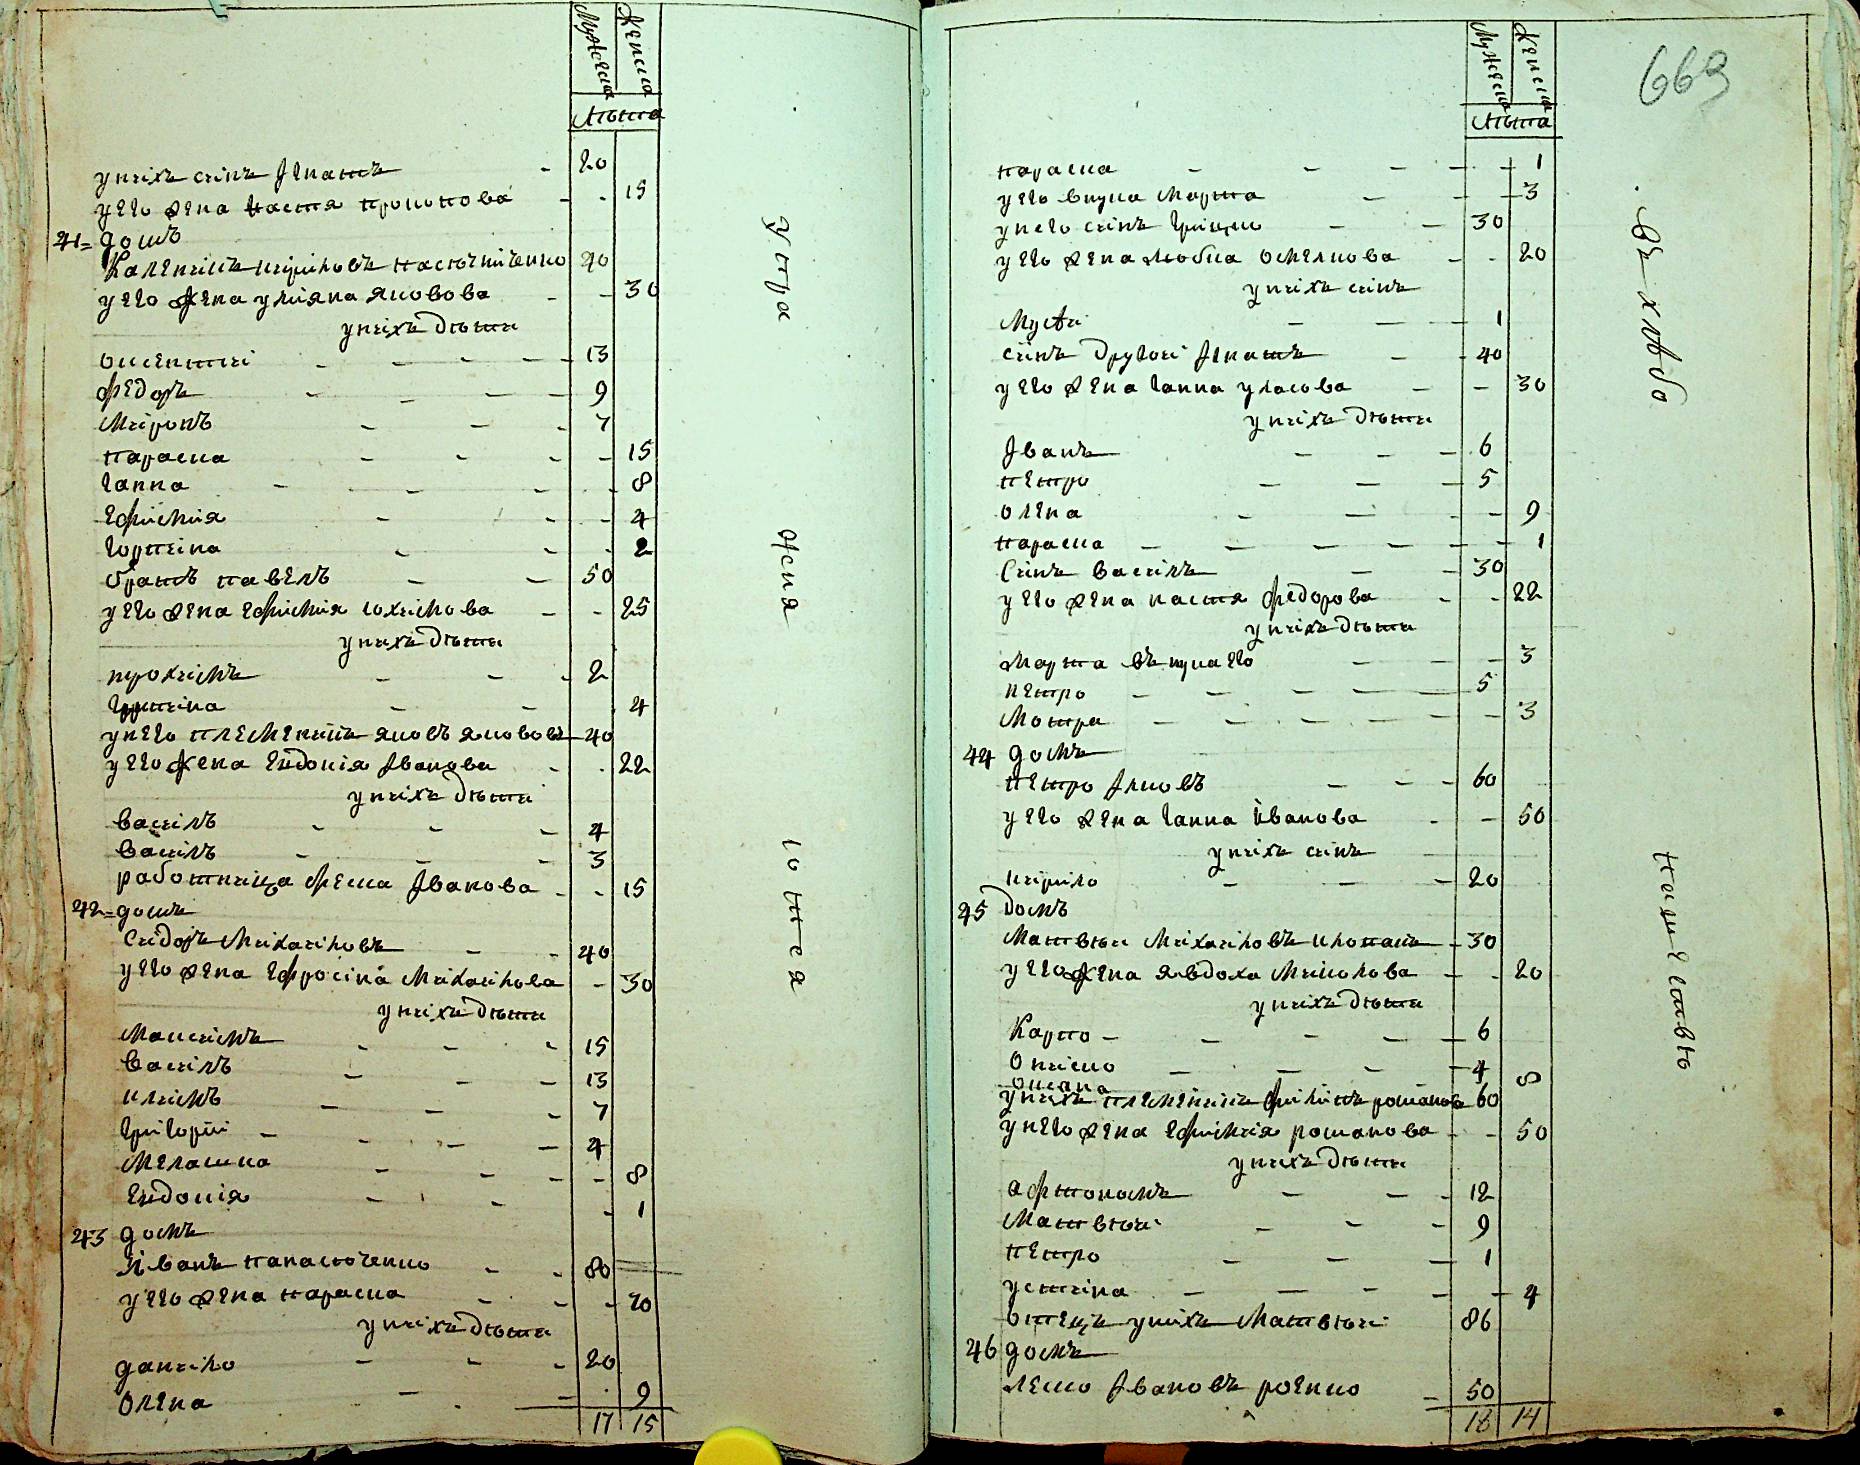 Мужеска Женска
Лѣта
у нихъ синъ Iгнатъ 20
у его жена Настя прокопова 15
41 = домъ
Каленикъ кириловъ 40
у его жена уліяна яковова 30
у нихъ дѣти
оксентий 13
федоръ 9
Миронъ 7
параска 15
ганна 8
ефимия 4
горпина 2
братъ павелъ 50
у его жена ефимия юхимова 25
у нихъ дѣти
прохимъ 2
горпина 4
у него племеникъ яковъ якововъ 40
у его жена Евдокія Iванова 22
у нихъ дѣти
василъ 4
василъ 3
работница феска Iванова 15
42 = домъ
Сидоръ Михаиловъ 40
у его жена ефросіна Михаилова 30
у нихъ дѣти
Максимъ 15
василъ 13
климъ 7
григорій 4
Мелашка 8
Евдокія 1
43 домъ
Иванъ панасюченко 80
у его жена параска 70
у нихъ дѣти
данило 20
Олена 9
17 15
Утра
Нсия
ютися
Мужеска Женска
Лѣта
663
параска 1
у его внука Марта 3
у него синъ грицко 30
у его жена любка омелкова 20
у нихъ синъ
Мусѣи 1
синъ другои Iгнатъ 40
у его жена ганна уласова 30
у нихъ дѣти
Iванъ 6
петро 5
олена 9
параска 1
Синъ василъ 30
у его жена настя федорова 22
у нихъ дѣти
Марта внука его 3
петро 5
Мотра 3
44 домъ
петро Iлковъ 60
у его жена ганна Іванова 50
у нихъ синъ
кирило 20
45 домъ
Матвѣи Михаиловъ клопакъ 30
у его жена явдоха Миколова 20
у нихъ дѣти
Карпо 6
Ониско 4
оксана 8
у нихъ племеникъ филипъ романовъ 60
у него жена ефимия романова 50
у нихъ дѣти
афтономъ 12
Матвѣи 9
петро 1
устина 4
отецъ у нихъ Матвѣи 86
46 домъ
леско Iвановъ роенко 50
18 14
въ хлѣбо